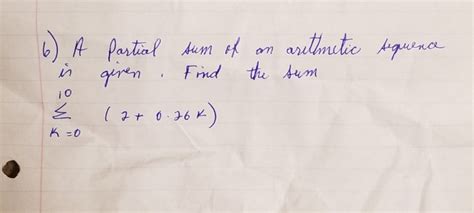 6) A Partial sum of an arithmetic sequence
is given. Find the sum
10
Σ (2 + 0.26K)
K=0